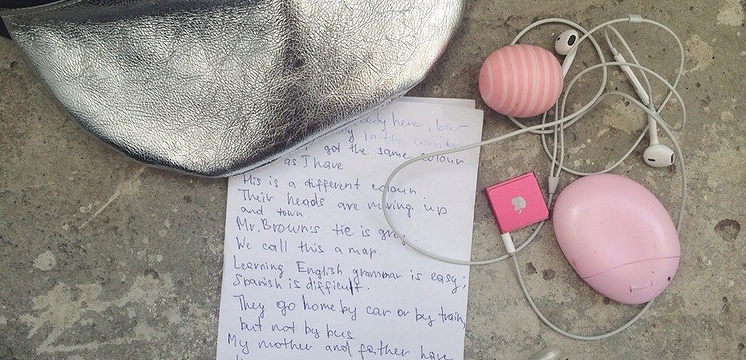 body here, but
in the corridor
got the same colour
as I have
This is a different colour
Their heads are moving up
and town.
Mr. Brown's tie is grey
We call this a map
Learning English grammar is easy;
Spanish is difficult.
They go home by car or by train
but not by bus
My mother and father have